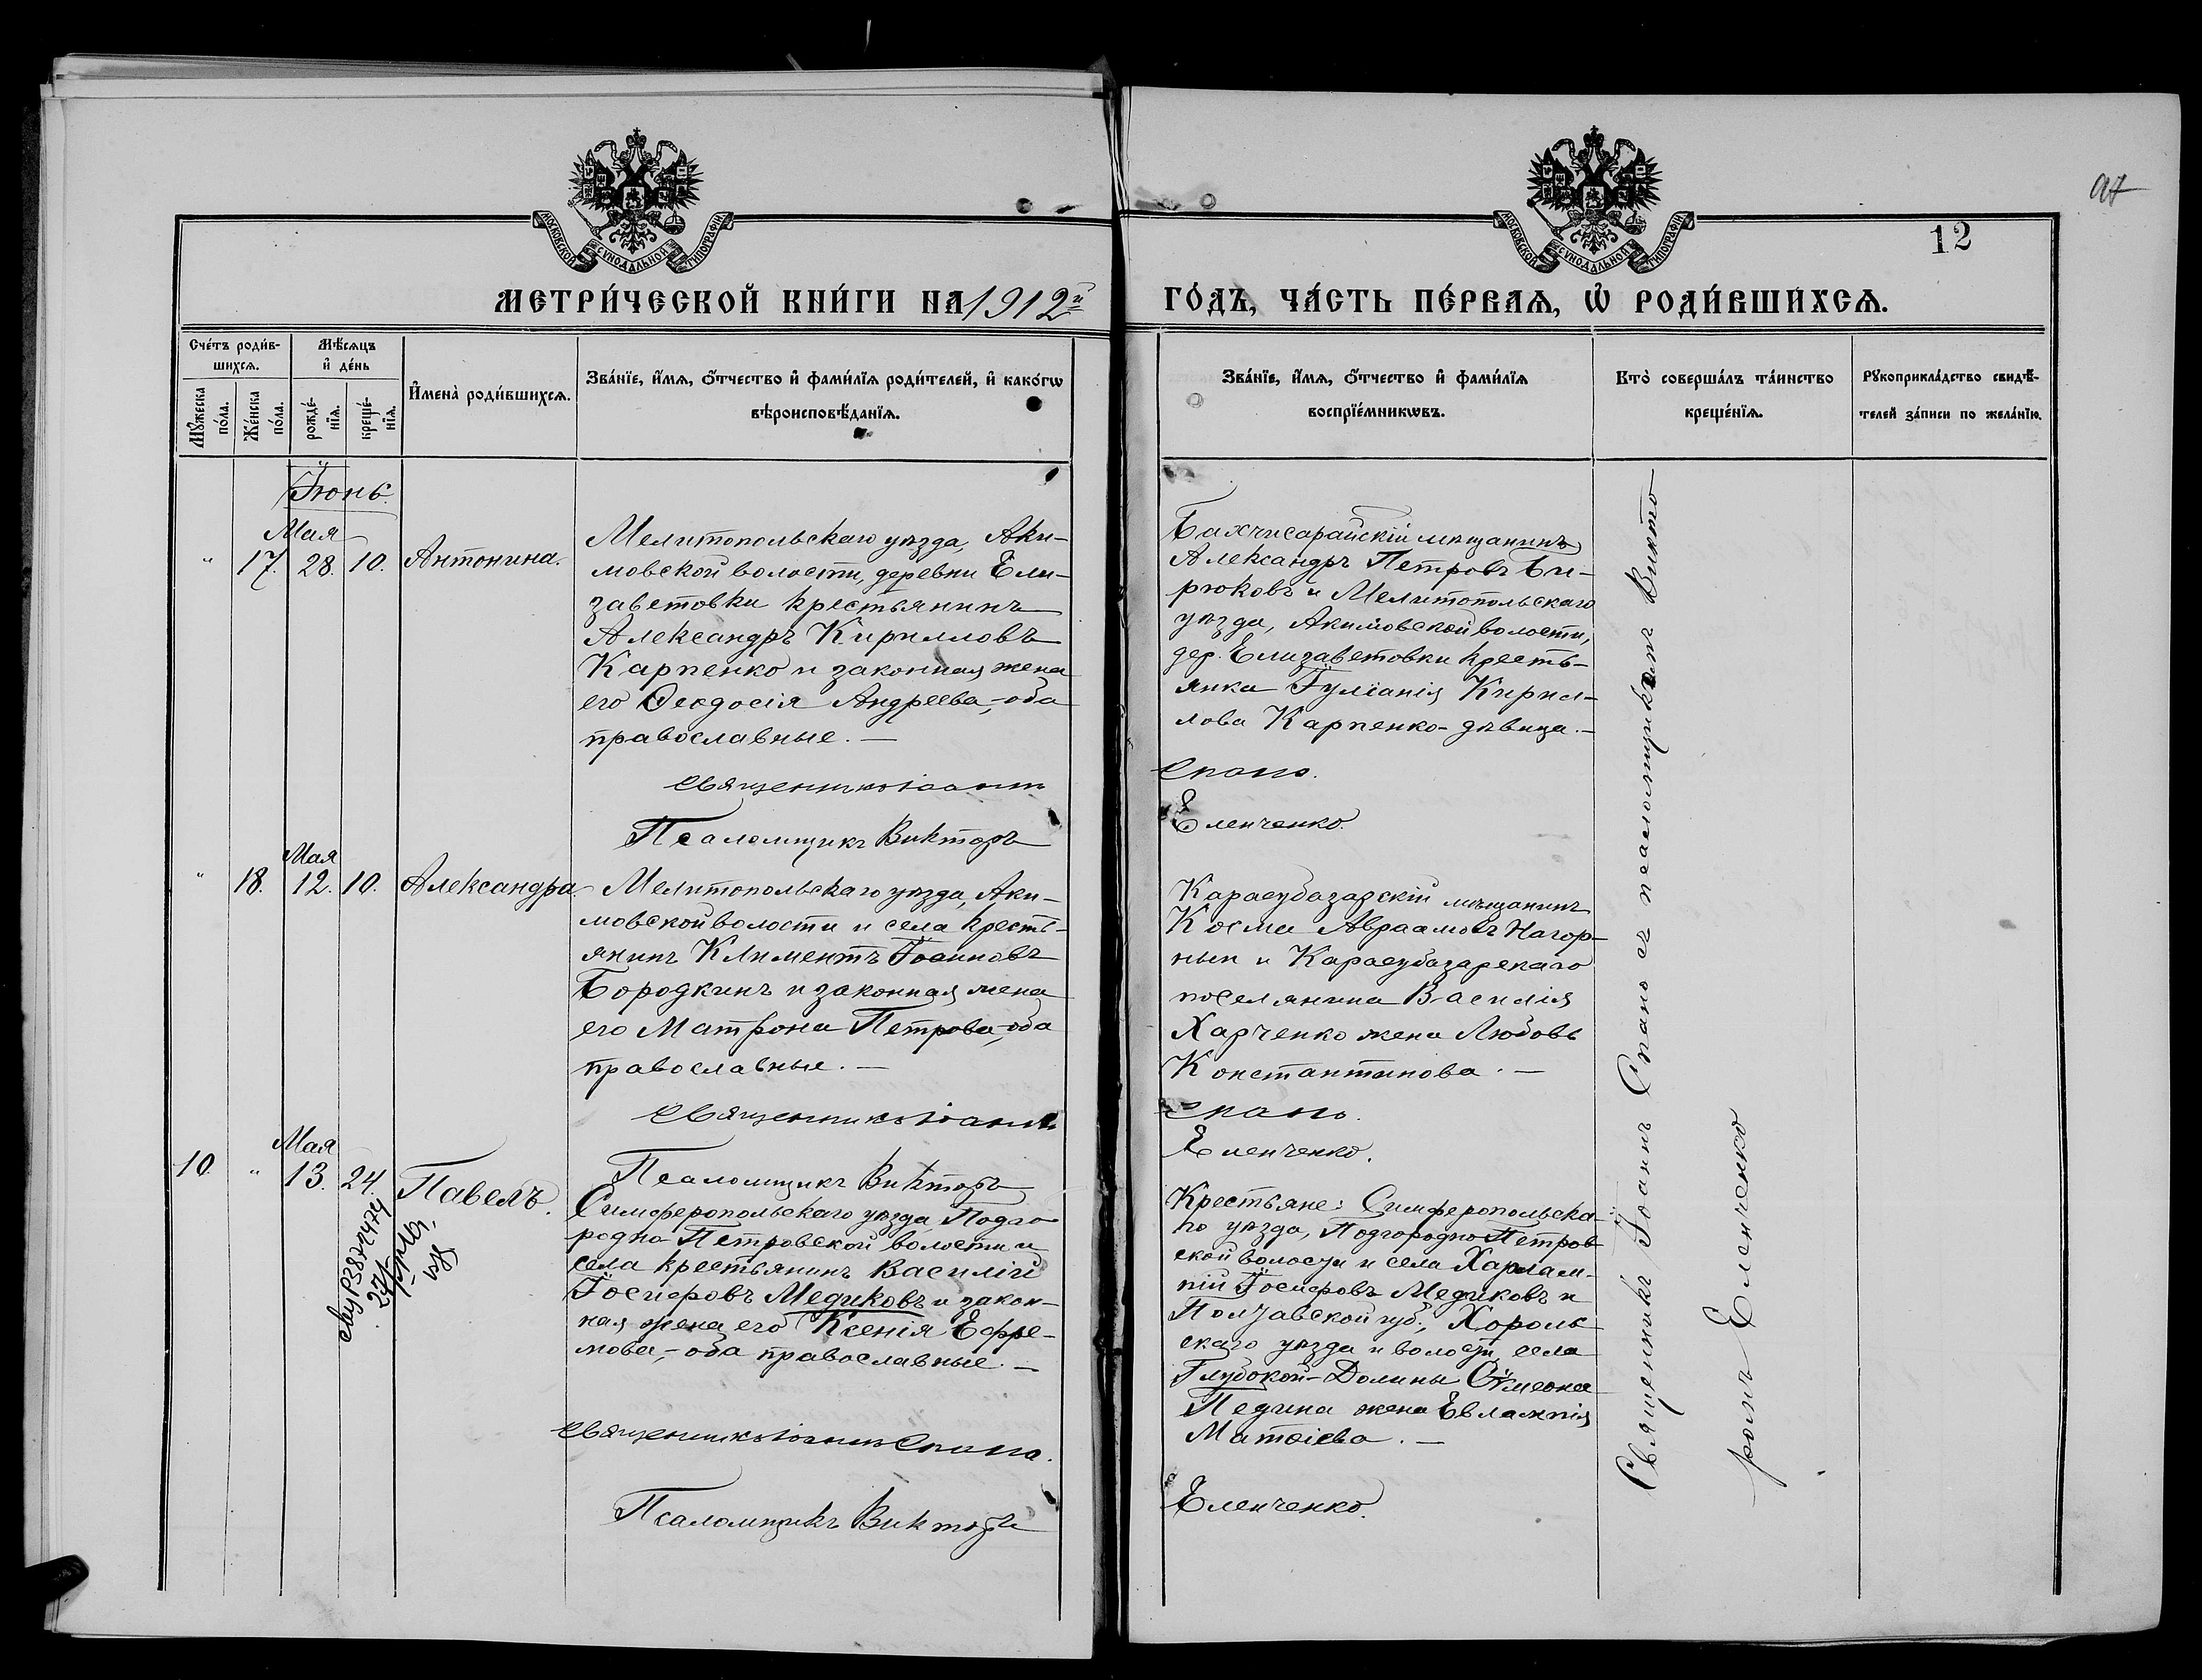 97
12
МОСКОВСКОЙ СѴНОДАЛЬНОЙ ТИПОГРАФІИ
МОСКОВСКОЙ СѴНОДАЛЬНОЙ ТИПОГРАФІИ
МЕТРИ́ЧЕСКОЙ КНИ́ГИ НА 1912й
ГО́ДЪ, ЧА́СТЬ ПЕ́РВАѦ, Ѿ РОДИ́ВШИХСѦ.
Сче́тъ роди́в-
шихсѧ.
Мꙋ́жеска по́ла.
Же́нска по́ла.
Мѣ́сѧцъ
и҆ де́нь
рожде́-
нїѧ.
креще́-
нїѧ.
И҆мена̀ роди́вшихсѧ.
Зва́нїе, и҆́мѧ, ѻ҆́тчество и҆ фами́лїѧ роди́телей, и҆ како́гѡ
вѣроисповѣ́данїѧ.
Зва́нїе, и҆́мѧ, ѻ҆́тчество и҆ фами́лїѧ
воспрїе́мникѡвъ.
Кто̀ соверша́лъ та́инство
креще́нїѧ.
Рꙋкоприкла́дство свидѣ́-
телей за́писи по жела́нїю.
Іюнь.
Мая
" 17. 28. 10. Антонина.
Мелитопольскаго уѣзда, Аки-
мовской волости, деревни Ели-
заветовки крестьянинъ
Александръ Кирилловъ
Карпенко и законная жена
его Ѳеодосія Андреева,-оба
православные. —
Священникъ Іоаннъ
Псаломщикъ Викторъ
Бахчисарайскій мѣщанинъ
Александръ Петровъ Би-
рюковъ и Мелитопольскаго
уѣзда, Акимовской волости,
дер. Елизаветовки кресть-
янка Іуліанія Кирил-
лова Карпенко-дѣвица. —
Спано.
Еленченко.
Мая
" 18. 12. 10. Александра.
Мелитопольскаго уѣзда, Аки-
мовской волости и села кресть-
янинъ Климентъ Іоанновъ
Бородкинъ и законная жена
его Матрона Петрова,-оба
православные. —
Священникъ Іоаннъ
Псаломщикъ Викторъ
Карасубазарскій мѣщанинъ
Косма Авраамовъ Нагор-
ный и Карасубазарскаго
поселянина Василія
Харченко жена Любовь
Константинова. —
Спано.
Еленченко.
Мая
10. " 13. 24. Павелъ.
Симферопольскаго уѣзда, Подго-
родно-Петровской волости и
села крестьянинъ Василій
Іосифовъ Медиковъ и закон-
ная жена его Ксенія Ефре-
мова,-оба православные. —
Священникъ Іоаннъ Спано.
Псаломщикъ Викторъ
Крестьяне: Симферопольска-
го уѣзда, Подгородно-Петров-
ской волости и села Харлам-
пій Іосифовъ Медиковъ и
Полтавской губ., Хороль-
скаго уѣзда и волости села
Глубокой-Долины Сѵмеона
Педина жена Евлампія
Матѳіева. —
Еленченко.
Священникъ Іоаннъ Спано съ псаломщикомъ Викто-
ромъ Еленченко